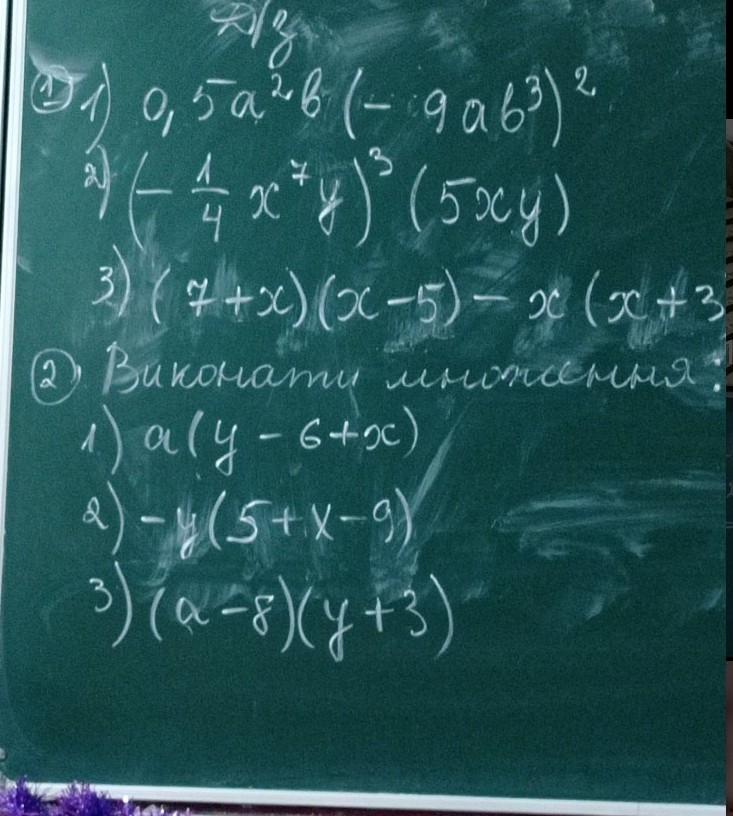 Д/з
① 1) 0,5a²b (- 9ab³)²
2) (- 1/4 x⁷y)³ (5xy)
3) (7+x)(x-5) - x (x+3
② Виконати множення:
1) a(y - 6+x)
2) -y(5+x-9)
3) (a-8)(y+3)